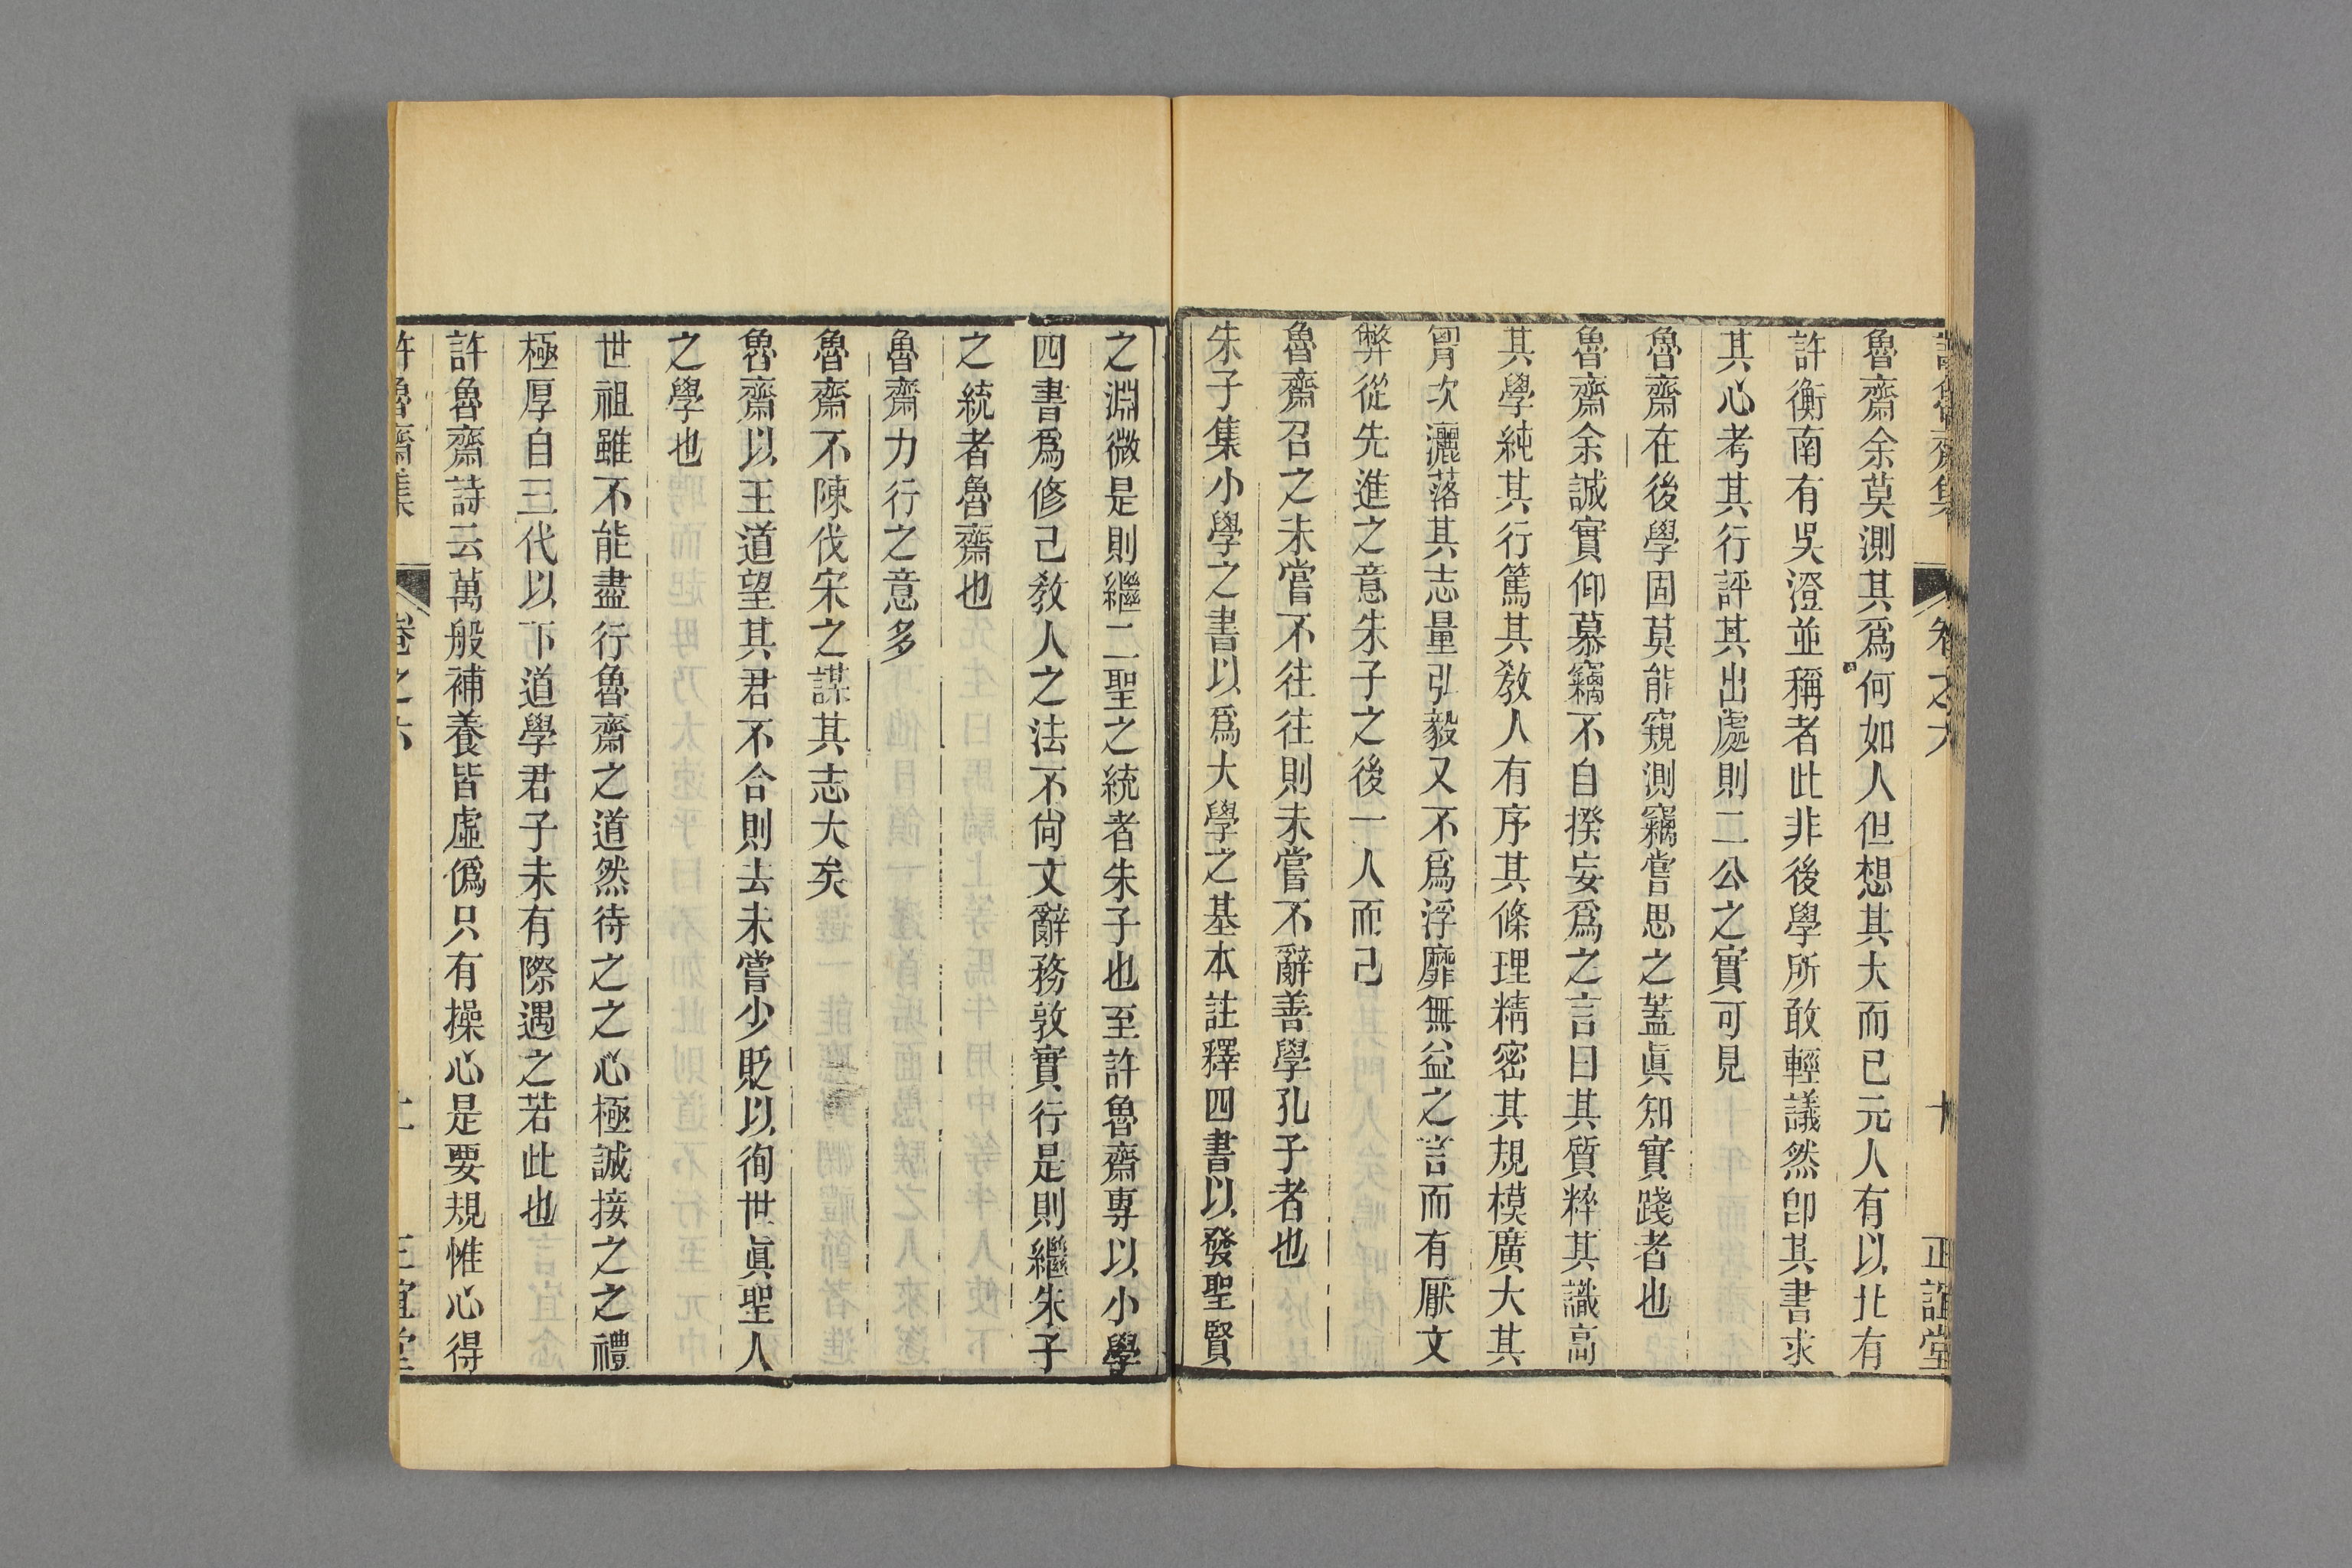 許魯齋集 卷之六 十 正誼堂
魯齋余莫測其爲何如人但想其大而已元人有以北有
許衡南有吳澄並稱者此非後學所敢輕議然卽其書求
其心考其行評其出處則二公之實可見
魯齋在後學固莫能窺測竊嘗思之蓋眞知實踐者也
魯齋余誠實仰慕竊不自揆妄爲之言曰其質粹其識高
其學純其行篤其敎人有序其條理精密其規模廣大其
胷次灑落其志量弘毅又不爲浮靡無益之言而有厭文
弊從先進之意朱子之後一人而已
魯齋召之未嘗不往往則未嘗不辭善學孔子者也
朱子集小學之書以爲大學之基本註釋四書以發聖賢
之淵微是則繼二聖之統者朱子也至許魯齋專以小學
四書爲修己敎人之法不尙文辭務敦實行是則繼朱子
之統者魯齋也
魯齋力行之意多
魯齋不陳伐宋之謀其志大矣
魯齋以王道望其君不合則去未嘗少貶以徇世眞聖人
之學也
世祖雖不能盡行魯齋之道然待之之心極誠接之之禮
極厚自三代以下道學君子未有際遇之若此也
許魯齋詩云萬般補養皆虛僞只有操心是要規惟心得
許魯齋集 卷之六 十一 正誼堂